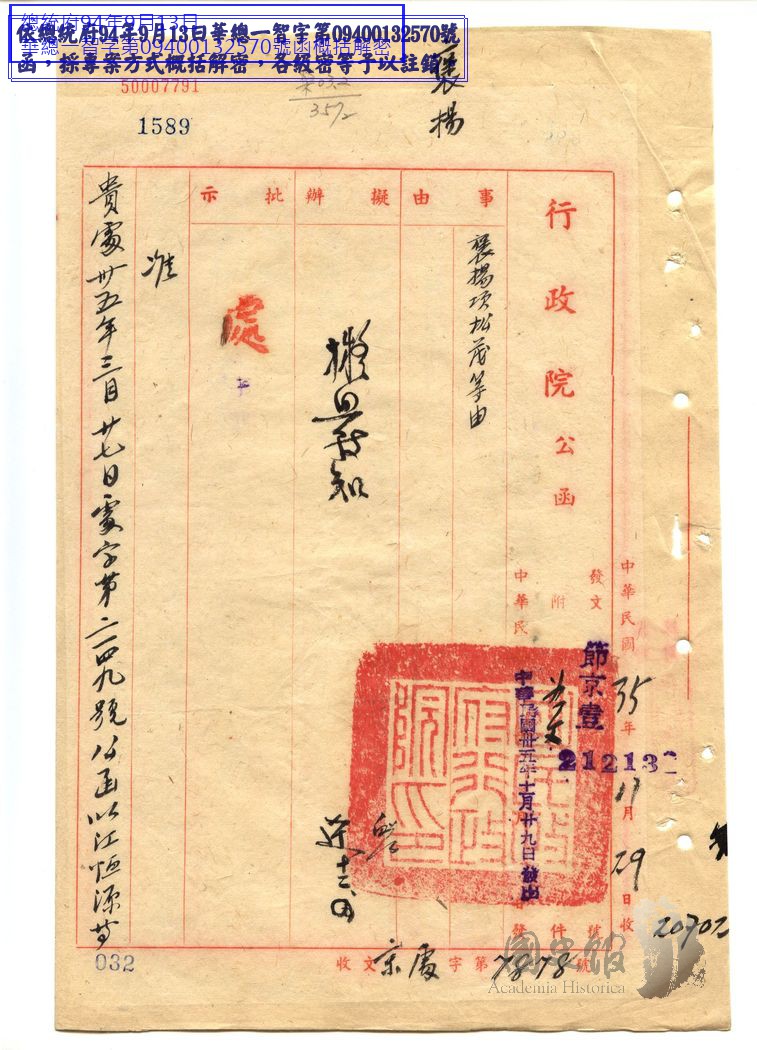 總統府94年9月13日
華總一智字第09400132570號函概括解密
依總統府94年9月13日華總一智字第09400132570號
函，採專案方式概括解密，各級密等予以註銷
50007791
357
1589
褒揚
行政院公函
事由
擬辦
批示
褒揚項松茂等由
處
准
貴處卅五年三月廿七日處字第二一四九號公函以江恒源等
中華民國35年11月29日收
發文
附件
中華民
節京壹
212132
號
中華民國卅五年十一月廿九日發出
發
20702
收文京處字第7878號
032
國史館
Academia Historica